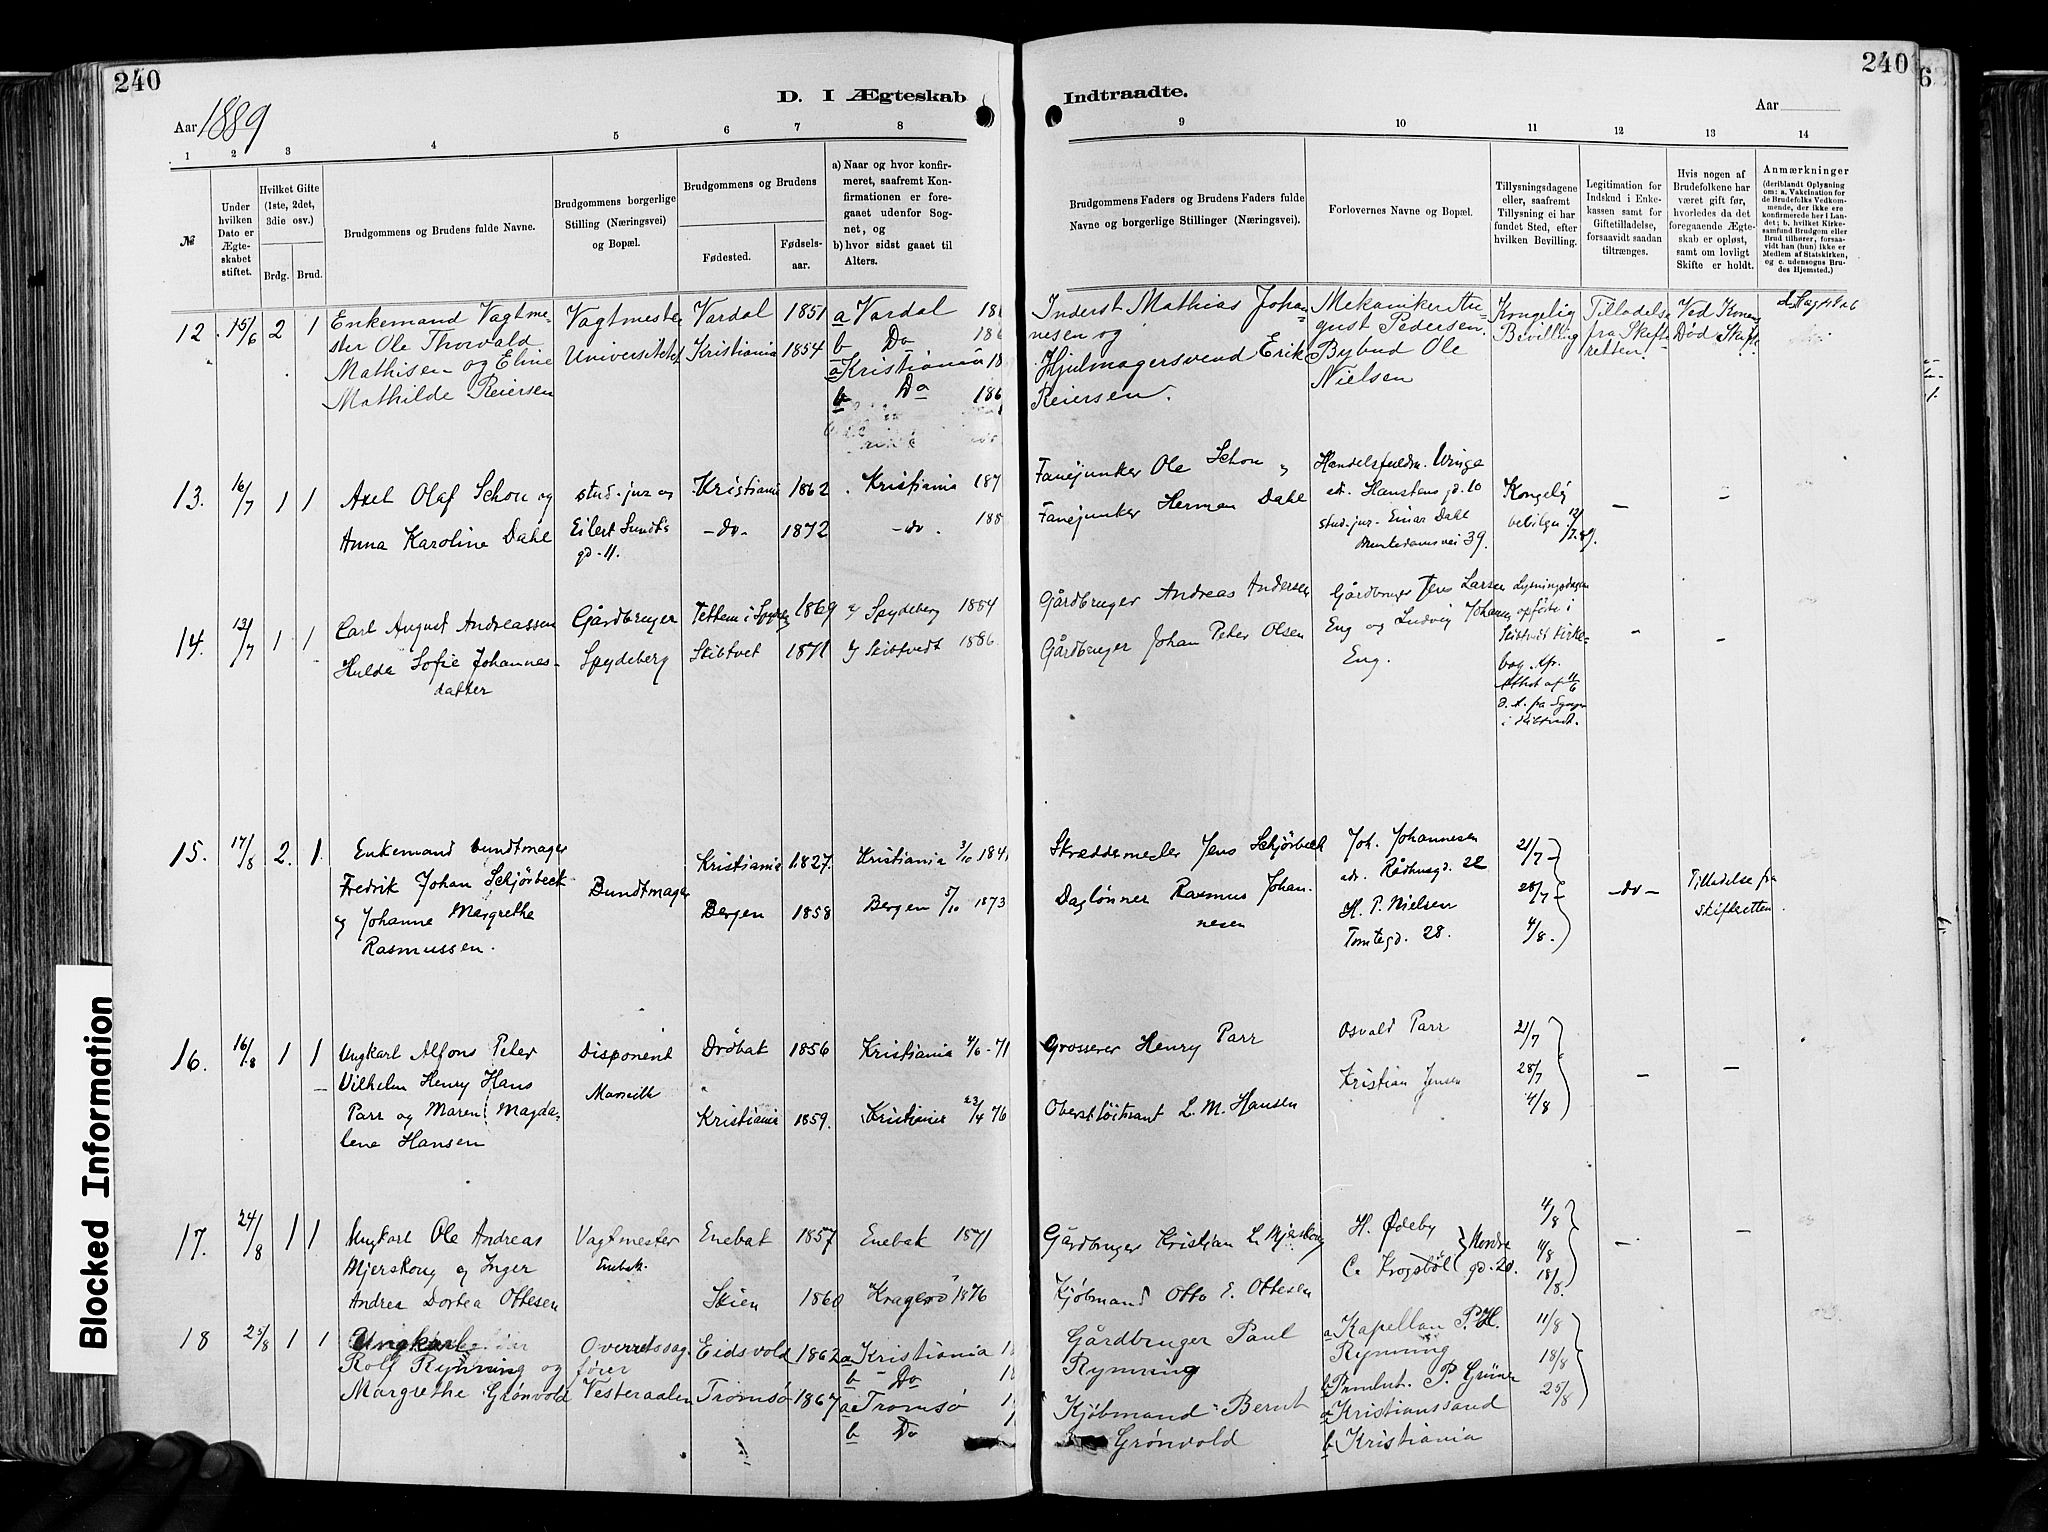 240
D. I Ægteskab
Aar 1889
1 2 3 4 5 6 7 8
№
Under hvilken Dato er Ægteskabet stiftet.
Hvilket Gifte (1ste, 2det, 3die osv.)
Brdg. Brud.
Brudgommens og Brudens fulde Navne.
Brudgommens borgerlige Stilling (Næringsvei) og Bopæl.
Brudgommens og Brudens
Fødested.
Fødselsaar.
a) Naar og hvor konfirmeret, saafremt Konfirmationen er foregaaet udenfor Sognet, og
b) hvor sidst gaaet til Alters.
12. 15/6 2 1
Enkemand Vagtme-
ster Ole Thorvald
Mathisen og Eline
Mathilde Reiersen
Vagtmester
Universitetet
Vardal 1851
Kristiania 1854
a Vardal
b Do
a Kristiania
b Do
13. 16/7 1 1
Axel Olaf Schou og
Anna Karoline Dahl
stud. jur. og
Eilert Sundts
gd. 11.
Kristiania 1862
-do- 1872
Kristiania 187
-do. 188
14. 13/7 1 1
Carl August Andreassen
Hulda Sofie Johannes-
datter
Gårdbruger
Spydeberg
1869
Skibtvet 1871
Spydeberg 1884
Skibtvedt 1886
15. 17/8 2. 1.
Enkemand bundtmager
Fredrik Johan Schjørbeck
og Johanne Margrethe
Rasmussen.
Bundtmager
Kristiania 1827.
Bergen 1858
Kristiania 3/10 184
Bergen 5/10 1873
16. 16/8 1 1
Ungkarl Alfons Peter
Vilhelm Henry Hans
Parr og Maren Magda-
lene Hansen
Disponent
Drøbak 1856
Kristiania 1859.
Kristiania 4/6-71
Kristiania 23/4 76
17. 24/8 1 1
Ungkarl Ole Andreas
Mjerskoug og Inger
Andrea Dortea Ottesen
Vagtmester
Enebak.
Enebak 1857
Skien 1860
Enebak 1871
Kragerø 1876
18 25/8 1 1
Ungkarl
Rolf Rynning og
Margrethe Grønvold
Overretssag
fører
Vesteraalen
Eidsvold 1862
Tromsø 1867
a Kristiania
b Do
a Tromsø
b Do
240
Indtraadte.
Aar
9 10 11 12 13 14
Brudgommens Faders og Brudens Faders fulde Navne og borgerlige Stillinger (Næringsvei).
Forlovernes Navne og Bopæl.
Tillysningsdagene eller, saafremt Tillysning ei har fundet Sted, efter hvilken Bevilling.
Legitimation for Indskud i Enkekassen samt for Giftetilladelse, forsaavidt saadan tiltrænges.
Hvis nogen af Brudefolkene har været gift før, hvorledes da det foregaaende Ægteskab er opløst, samt om lovligt Skifte er holdt.
Anmærkninger
(deriblandt Oplysning om: a. Vakcination for de Brudefolks Vedkommende, der ikke ere konfirmerede her i Landet; b. hvilket Kirkesamfund Brudgom eller Brud tilhører, forsaavidt han (hun) ikke er Medlem af Statskirken, og c. udensogns Brudes Hjemsted.)
Inderst Mathias Johan-
nesen og
Hjulmagersvend Erik
Reiersen.
Mekaniker Au-
gust Pedersen.
Bybud Ole
Nielsen
Kongelig
Bevilling
Tilladelse
fra Skifte
retten.
Ved Konens
Død Skifte
Fanejunker Ole Schou
Fanejunker Herman Dahl
Handelsfuldm. Winge
adr. Hanstens gd. 10
stud. jur. Einar Dahl
Munkedamsvei 39.
Kongelig
bevilgn. 12/7.89.
Gårdbruger Andreas Andersen
Gårdbruger Johan Peter Olsen
Gårdbruger Jens Larsen
Eng og Ludvig Johannes
Eng.
Lysningsdagene
opførte i
Skibtvedt Kirke-
bog
Attest af 11/6
i Skibtvedt.
Skræddermester Jens Schjørbeck
Dagløner Rasmus Johan-
nesen
Joh. Johannesen
adr. Rådhusgd. 22
H. P. Nielsen
Tomtegd. 28.
21/7
28/7
4/8.
-do-
Tilladelse fra
skifteretten.
Grosserer Henry Parr
Oberstløitnant L. M. Hansen
Osvald Parr
Kristian Jensen
21/7
28/7
4/8
Gårdbruger Kristian L. Mjerskoug
Kjøbmand Otto E. Ottesen
H. Ødeby
C. Krogsbøl
Nordre
gd. 20.
4/8
11/8
18/8.
Gårdbruger Paul
Rynning
Kjøbmand Bernt
Grønvold
a Kapellan P. H.
Rynning
b P. Grüner
a Kristianssand
b Kristiania
11/8
18/8
25/8
6
Blocked Information